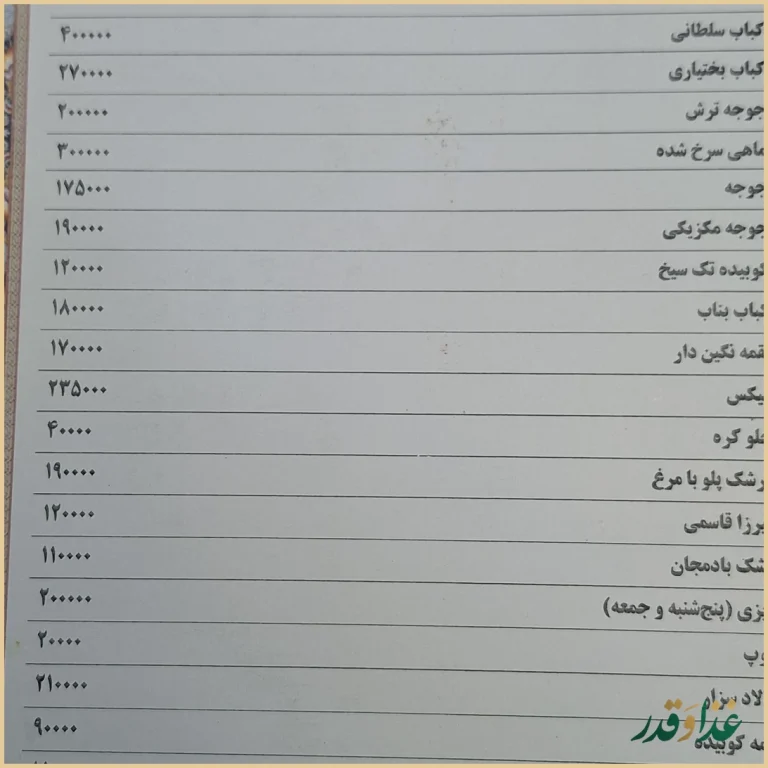 کباب سلطانی ۴۰۰۰۰۰
کباب بختیاری ۲۷۰۰۰۰
جوجه ترش ۲۰۰۰۰۰
ماهی سرخ شده ۳۰۰۰۰۰
جوجه ۱۷۵۰۰۰
جوجه مکزیکی ۱۹۰۰۰۰
کوبیده تک سیخ ۱۲۰۰۰۰
کباب بناب ۱۸۰۰۰۰
قمه نگین دار ۱۷۰۰۰۰
یکس ۲۳۵۰۰۰
لو کره ۴۰۰۰۰
رشک پلو با مرغ ۱۹۰۰۰۰
یرزا قاسمی ۱۲۰۰۰۰
شک بادمجان ۱۱۰۰۰۰
یزی (پنج‌شنبه و جمعه) ۲۰۰۰۰۰
وپ ۲۰۰۰۰
لاد سزار ۲۱۰۰۰۰
مه کوبیده ۹۰۰۰۰
غذا و قدر